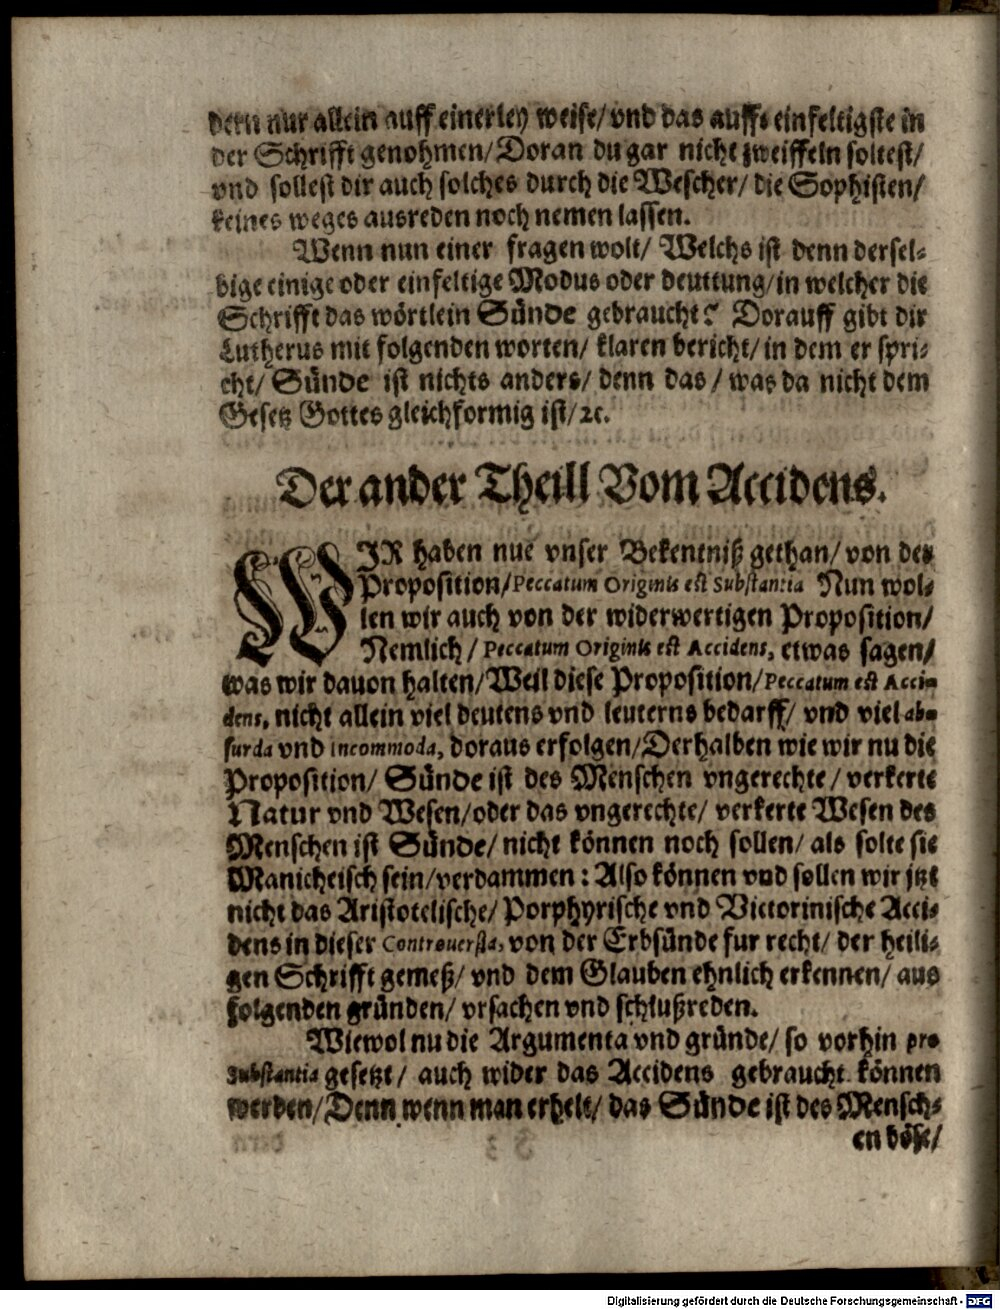 dern nur allein auff einerley weise/ vnd das auffs einfeltigste in
der Schrifft genohmen/ Doran du gar nicht zweiffeln soltest/
vnd sollest dir auch solches durch die Wescher/ die Sophisten/
keines weges ausreden noch nemen lassen.
Wenn nun einer fragen wolt/ Welchs ist denn dersel-
bige einige oder einfeltige Modus oder deuttung/ in welcher die
Schrifft das wörtlein Sünde gebraucht? Dorauff gibt dir
Lutherus mit folgenden worten/ klaren bericht/ in dem er spri-
cht/ Sünde ist nichts anders/ denn das/ was da nicht dem
Gesetz Gottes gleichformig ist/ ꝛc.
Der ander Theill Vom Accidens.
WIR haben nue vnser Bekentniß gethan/ von der
Proposition/ Peccatum Originis est Substantia Nun wol-
len wir auch von der widerwertigen Proposition/
Nemlich/ Peccatum Originis est Accidens, etwas sagen/
was wir dauon halten/ Weil diese Proposition/ Peccatum est Acci-
dens, nicht allein viel deutens vnd leuterns bedarff/ vnd viel ab-
surda vnd incommoda, doraus erfolgen/ Derhalben wie wir nu die
Proposition/ Sünde ist des Menschen vngerechte/ verkerte
Natur vnd Wesen/ oder das vngerechte/ verkerte Wesen des
Menschen ist Sünde/ nicht können noch sollen/ als solte sie
Manicheisch sein/ verdammen: Also können vnd sollen wir jtzt
nicht das Aristotelische/ Porphyrische vnd Victorinische Acci-
dens in dieser Controuersia, von der Erbsünde fur recht/ der heili-
gen Schrifft gemeß/ vnd dem Glauben ehnlich erkennen/ aus
folgenden gründen/ vrsachen vnd schlußreden.
Wiewol nu die Argumenta vnd gründe/ so vorhin pro
Substantia gesetzt/ auch wider das Accidens gebraucht können
werden/ Denn wenn man erhelt/ das Sünde ist des Mensch-
en böse/
Digitalisierung gefördert durch die Deutsche Forschungsgemeinschaft - DFG